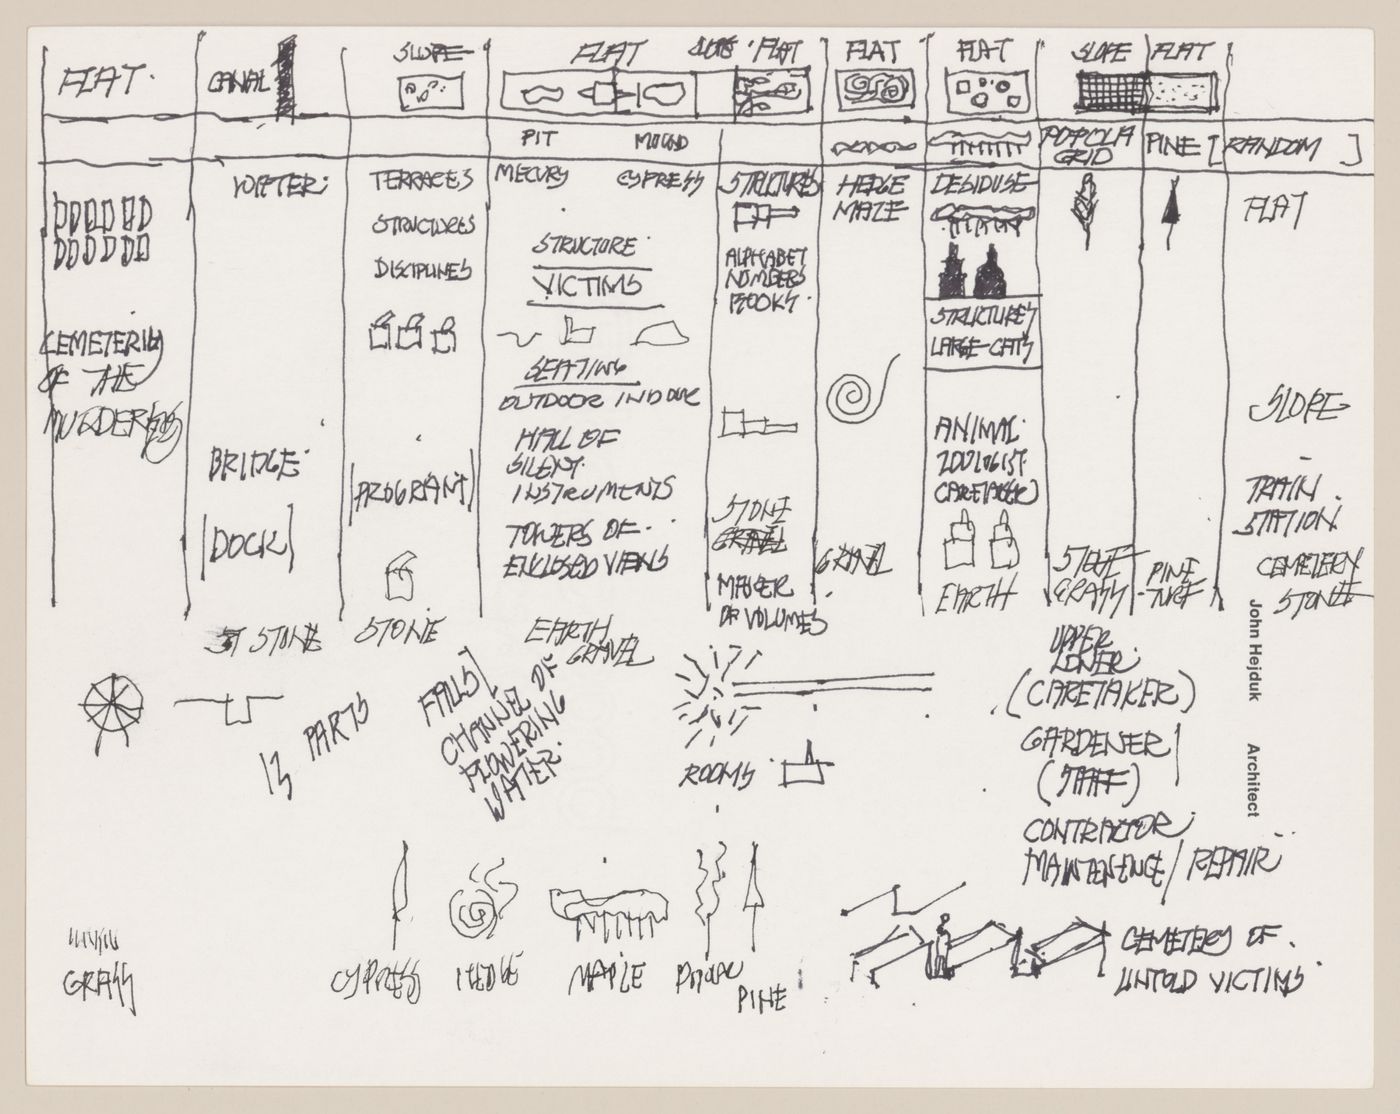 FLAT.
CANAL
SLOPE
FLAT
SLOPE · FLAT
FLAT
FLAT
SLOPE
FLAT
PIT
MOUND
POPOLA
GRID
PINE
[RANDOM]
CEMETERIES
OF THE
MURDERESS
WATER.
BRIDGE.
[DOCK]
ST STONE
TERRACES
STRUCTURES
DISCIPLINES
[PROGRAM]
STONE
MECURY
CYPRESS
STRUCTURE.
VICTIMS
SEATING
OUTDOOR INDOOR
HALL OF
SILENT.
INSTRUMENTS
TOWERS OF.
ENCLOSED VIEWS
EARTH
GRAVEL
STRUCTURES
ALPHABET
NUMBERS
BOOKS.
STONE
GRAVEL
MAKER
OF VOLUMES
HEDGE
MAZE
GRAVEL
DESIDUSE
STRUCTURES
LARGE CATS
ANIMAL.
ZOOLOGIST.
CARETAKER
EARTH
STONE
GRASS
PINE
TURF
FLAT
SLOPE
TRAIN
STATION.
CEMETERY
STONE
13 PARTS
FALLS]
CHANNEL OF
FLOWERING
WATER.
ROOMS
UPPER
LOWER.
(CARETAKER)
GARDENER
(STAFF)
CONTRACTOR
MAINTENENCE/REPAIR
John Hejduk Architect
GRASS
CYPRESS
HEDGE
MAPLE
POPLAR
PINE
CEMETERY OF
UNTOLD VICTIMS